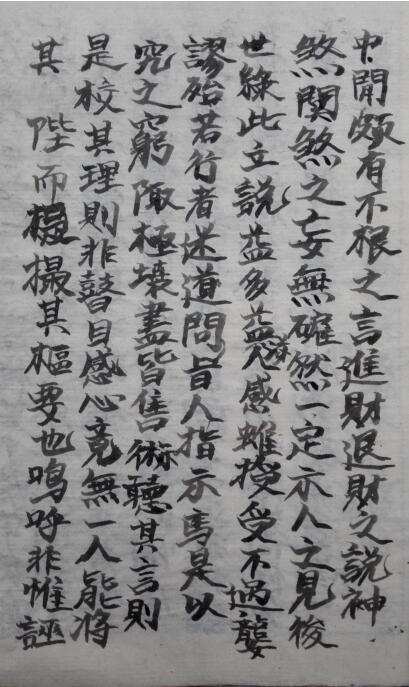 中間頗有不根之言進財退財之說神
煞關煞之妄無確然一定示人之見後
世緣此立說益多益感雖授受不過襲
謬殆若行者迷道問盲人指示焉是以
究之窮陬極壤盡皆售術聽其言則
是校其理則非瞽目感心竟無一人能將
其陛而撮其樞要也鳴呼非惟誣